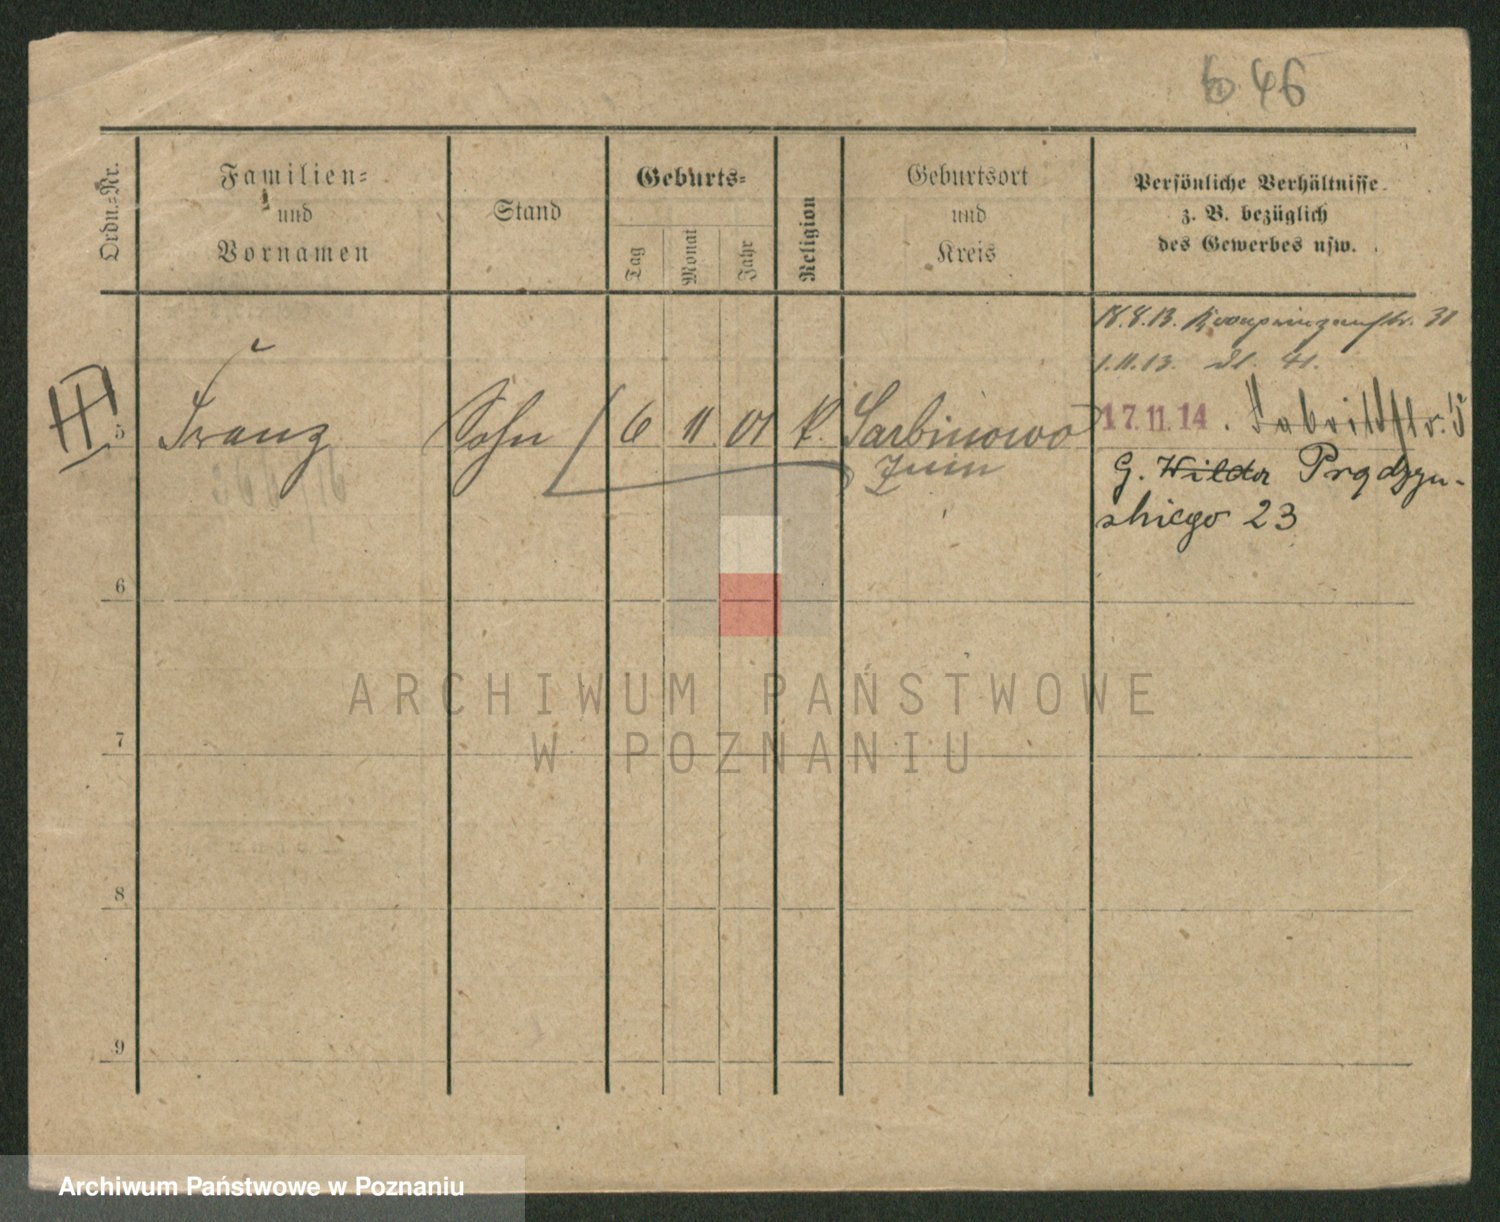 46
Ordn.-Nr.
Familien-
und
Vornamen
Stand
Geburts-
Tag
Monat
Jahr
Religion
Geburtsort
und
Kreis
Persönliche Verhältnisse
z. B. bezüglich
des Gewerbes usw.
18.8.13. Kronprinzenstr. 31
1.11.13. 41.
5 Franz Sohn 6 11 01 k. Sarbinowo 17.11.14.
Znin
G. Wilda Prądzyn-
skiego 23
6
7
8
9
ARCHIWUM PAŃSTWOWE
W POZNANIU
Archiwum Państwowe w Poznaniu